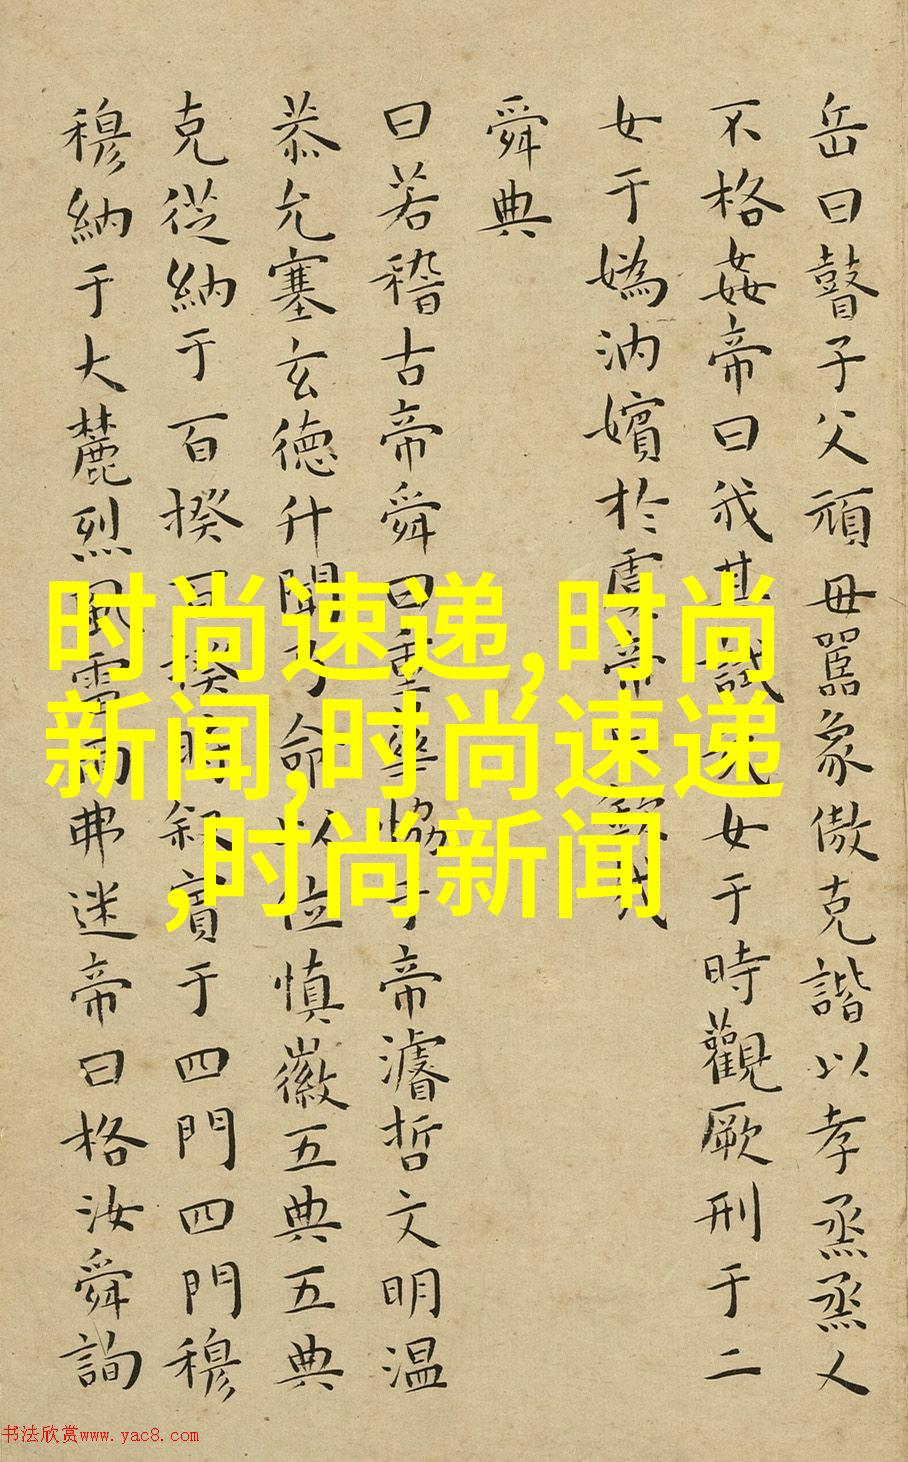 岳曰瞽子父頑毋嚚象傲克諧以孝烝烝乂
不格姦帝曰我其試女于時觀厥刑于二
女于媯汭嬪於虞帝
舜典
曰若稽古帝舜曰重華協于帝濬哲文明温
恭允塞玄德升聞乃命以位慎徽五典五典
克從納于百揆百揆時叙賓于四門四門穆
穆納于大麓烈風雷雨弗迷帝曰格汝舜詢
时尚速递,时尚
新闻,时尚速递
,时尚新闻
书法欣赏www.yac8.com